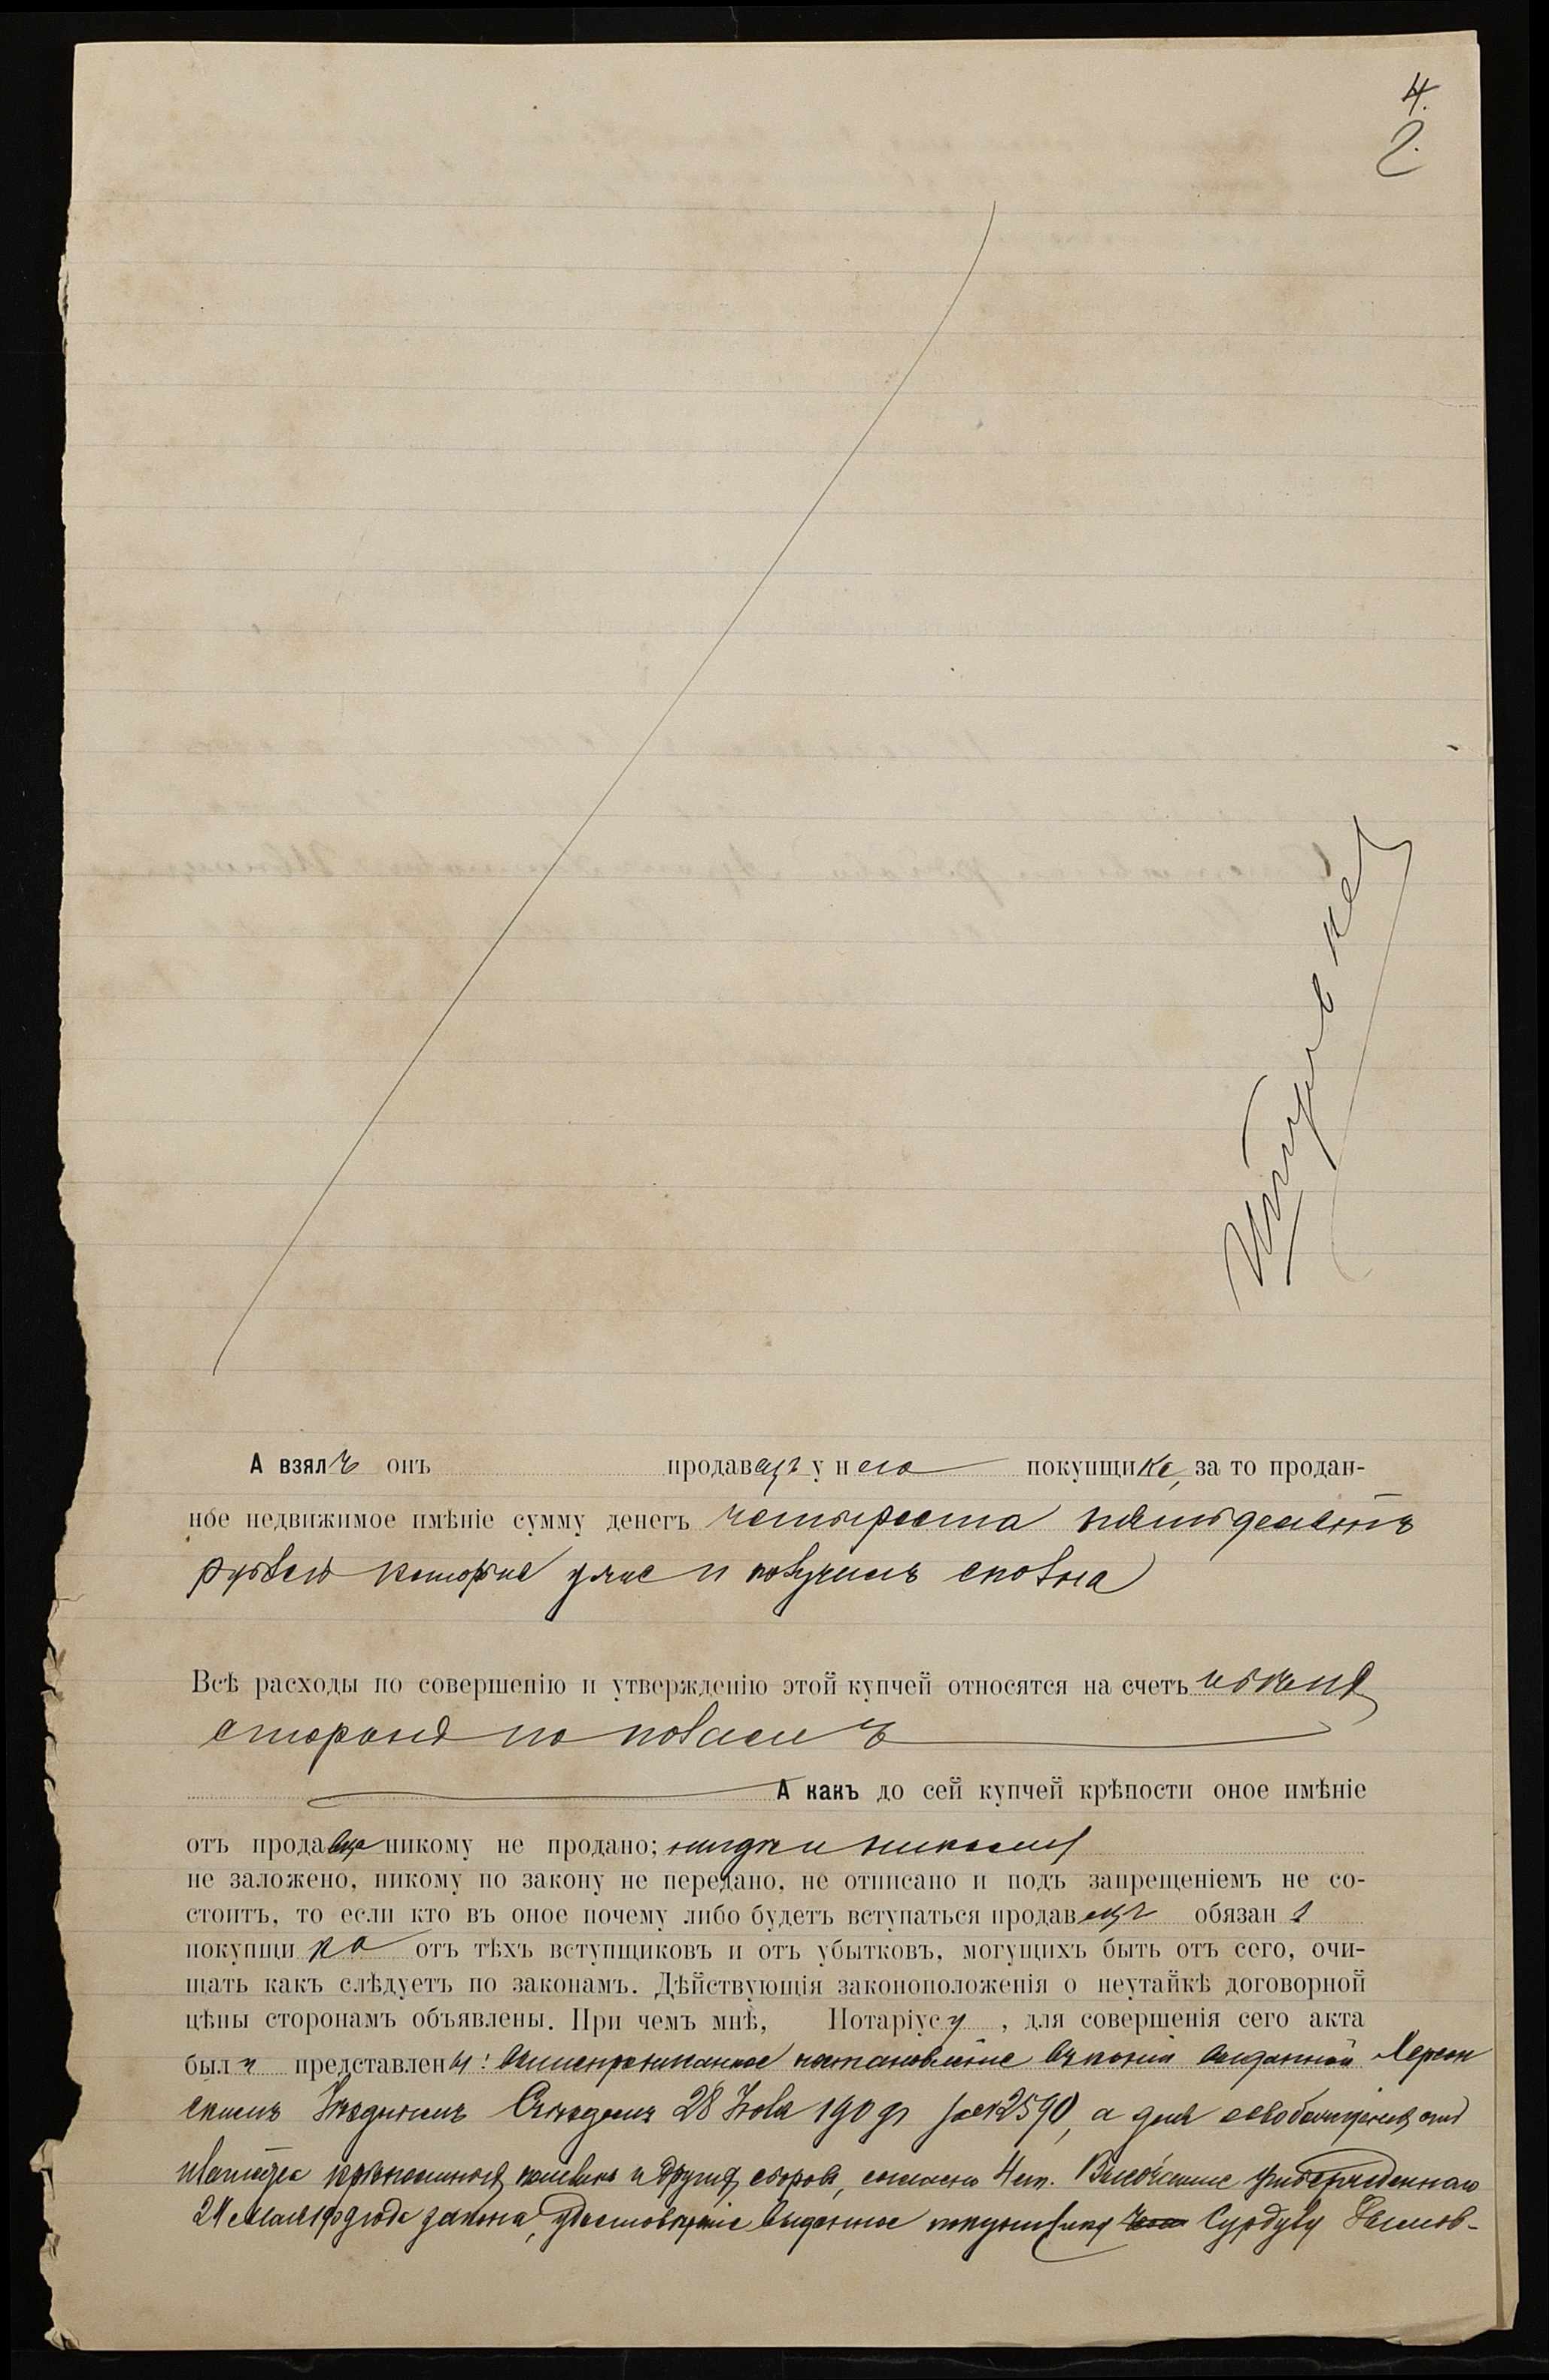 4.
2.
А взялъ онъ продавецъ у него покупщика, за то продан-
ное недвижимое имѣніе сумму денегъ четыреста пятьдесятъ
рублей которые уже и получилъ сполна
Всѣ расходы по совершенію и утвержденію этой купчей относятся на счетъ обѣихъ
сторонъ по поламъ
А какъ до сей купчей крѣпости оное имѣніе
отъ продавца никому не продано; нигдѣ и никому
не заложено, никому по закону не передано, не отписано и подъ запрещеніемъ не со-
стоитъ, то если кто въ оное почему либо будетъ вступаться продавецъ обязанъ
покупщика отъ тѣхъ вступщиковъ и отъ убытковъ, могущихъ быть отъ сего, очи-
щать какъ слѣдуетъ по законамъ. Дѣйствующія законоположенія о неутайкѣ договорной
цѣны сторонамъ объявлены. При чемъ мнѣ, Нотаріусу, для совершенія сего акта
были представлены: вышепрописанное постановленіе въ копіи выданной Херсон
скимъ Уѣзднымъ Съѣздомъ 28 190 г за №2590, а для освобожденія отъ
платежа крѣпостныхъ пошлинъ и другихъ сборовъ, согласно Высочайше утвержденнаго
закона, удостовѣреніе выданное покупщику Сурдулу